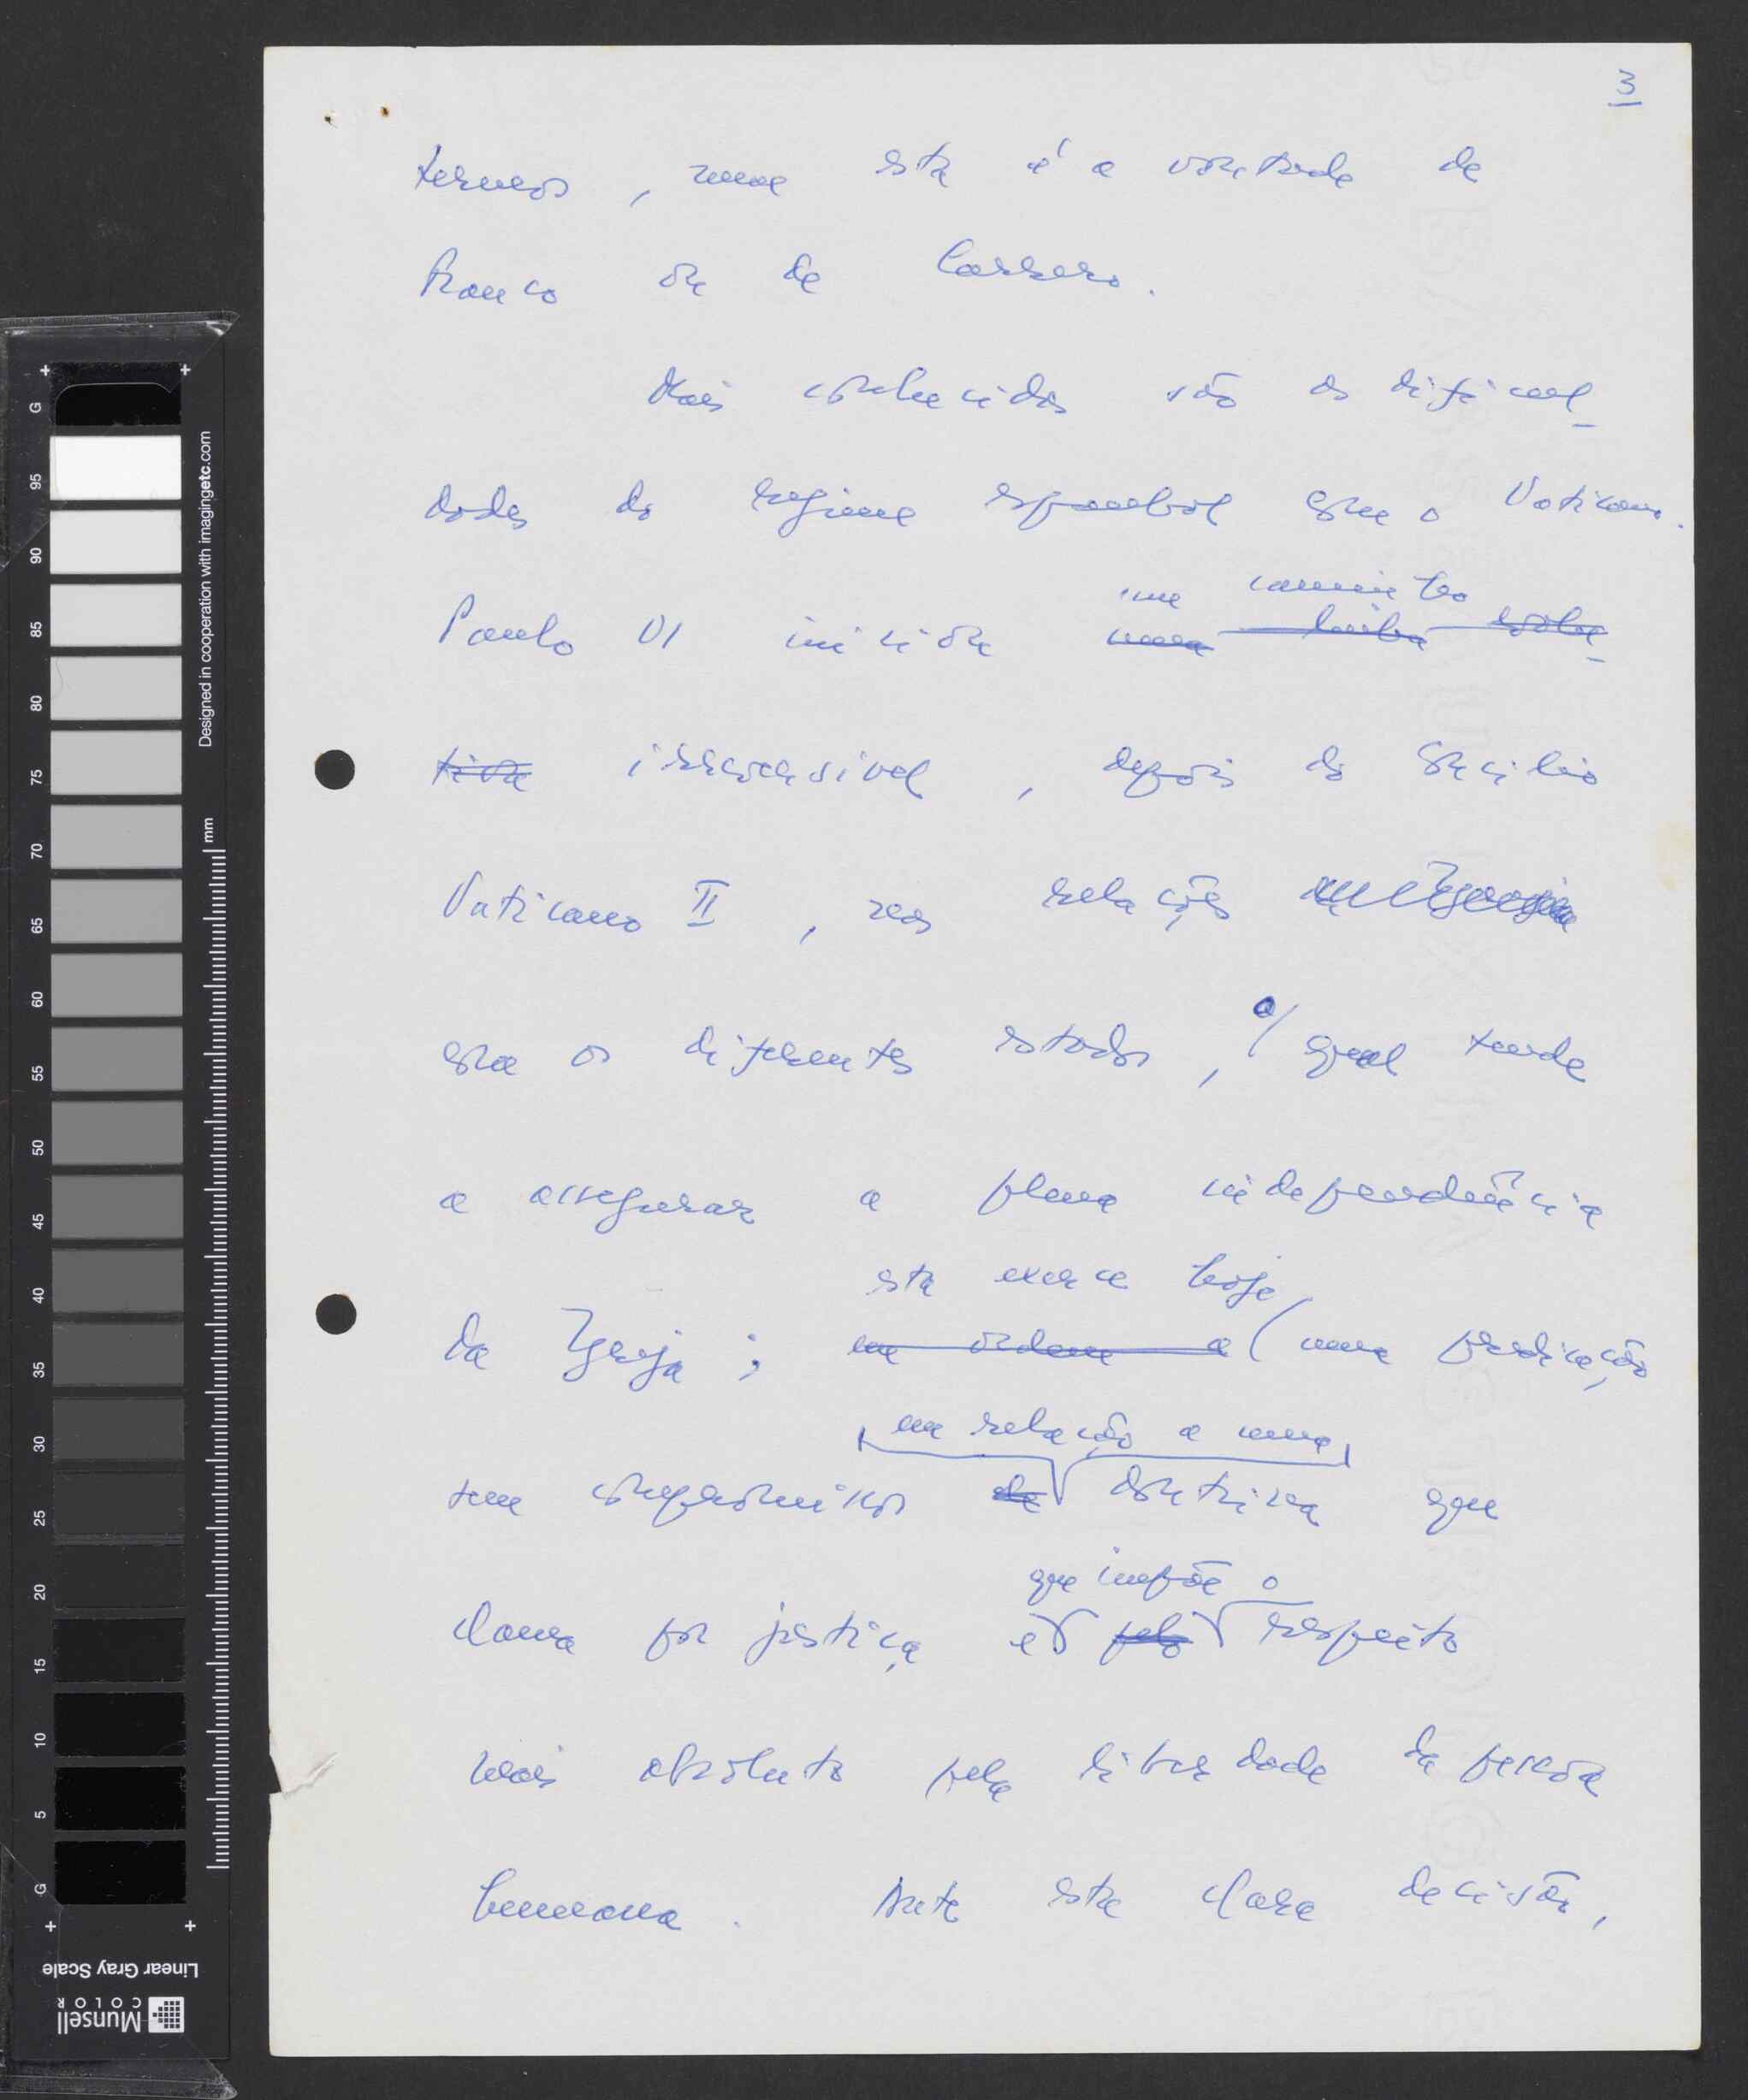 3
termos, nem esta é a vontade de
Franco ou de Carrero.
Mais conhecidas são as dificul_
dades do regime espanhol com o Vaticano.
um caminho
Paulo VI iniciou uma linha evolu_
tiva irreversível, depois do Concílio
Vaticano II, nas relações
com os diferentes estados, o/ qual tende
a assegurar a plena independência
esta exerce hoje,
da Igreja; em ordem a (uma predicação
em relação a uma
sem compromissos de doutrina que
que impõe o
clama por justiça e pelo respeito
mais absoluto pela liberdade da pessoa
humana. Ante esta clara decisão,
Designed in cooperation with imagingetc.com
mm
G 95 90 85 80 75 70 65 60 55 50 45 40 35 30 25 20 15 10 5 G
Linear Gray Scale
Munsell
COLOR